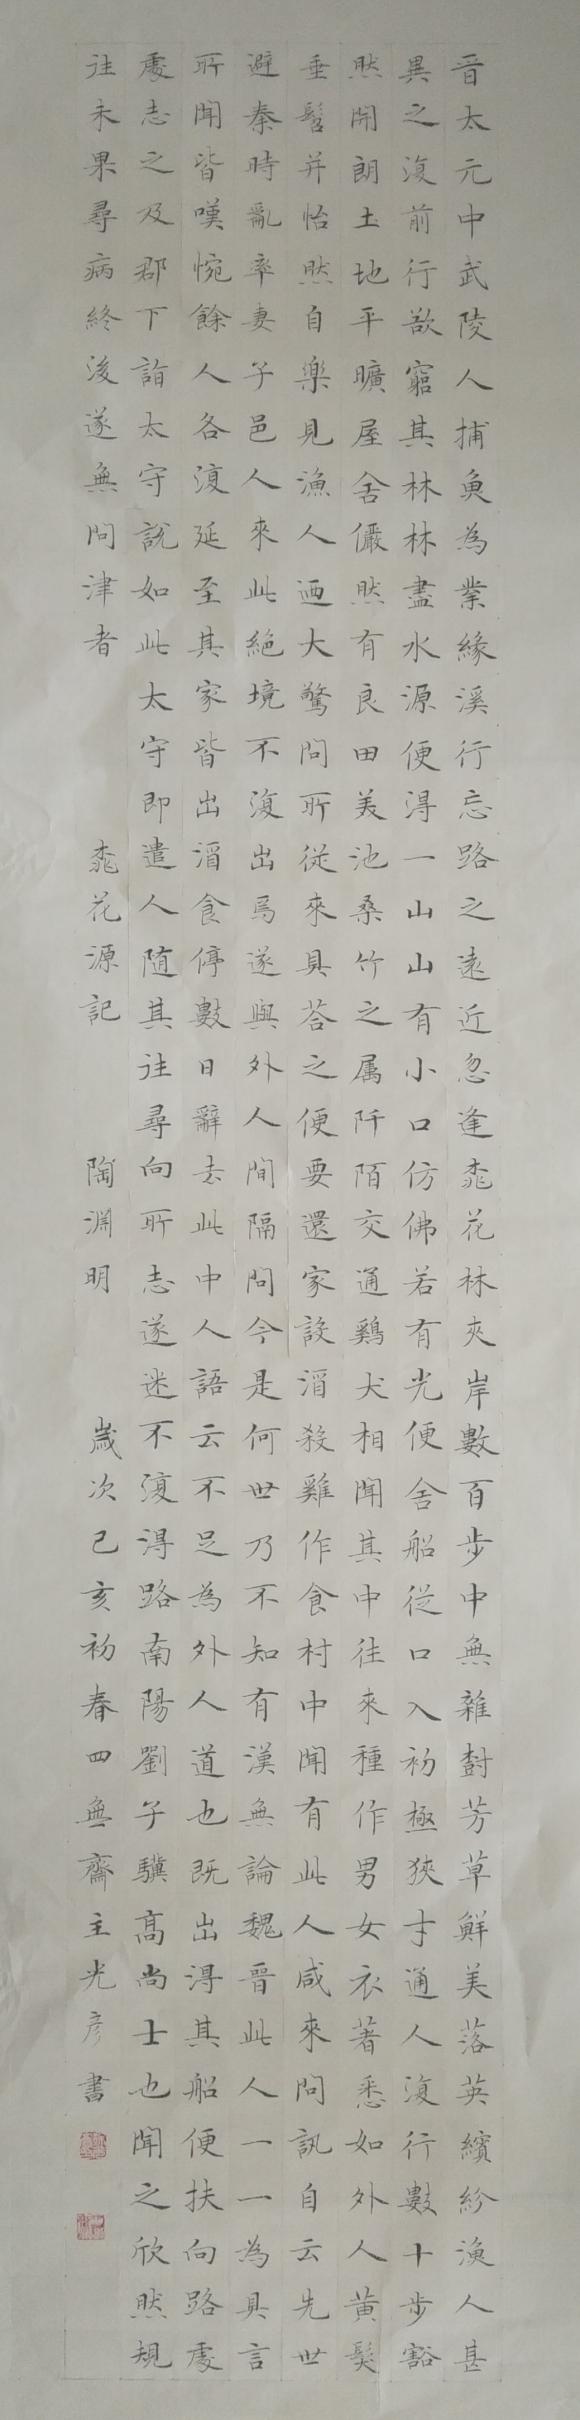 晋太元中武陵人捕魚為業緣溪行忘路之遠近忽逢桃花林夾岸數百步中無雜樹芳草鮮美落英繽紛漁人甚
異之復前行欲窮其林林盡水源便得一山山有小口仿佛若有光便舍船從口入初極狹才通人復行數十步豁
然開朗土地平曠屋舍儼然有良田美池桑竹之属阡陌交通鷄犬相聞其中往來種作男女衣著悉如外人黄髮
垂髫并怡然自樂見漁人迺大驚問所從來具荅之便要還家設酒殺雞作食村中聞有此人咸來問訊自云先世
避秦時亂率妻子邑人來此絕境不復出焉遂與外人間隔問今是何世乃不知有漢無論魏晋此人一一為具言
所聞皆嘆惋餘人各復延至其家皆出酒食停數日辭去此中人語云不足為外人道也既出得其船便扶向路處
處志之及郡下詣太守説如此太守即遣人随其往尋向所志遂迷不復得路南陽劉子驥高尚士也聞之欣然規
往未果尋病終後遂無問津者 桃花源記 陶淵明 歲次己亥初春四無齋主光彦書